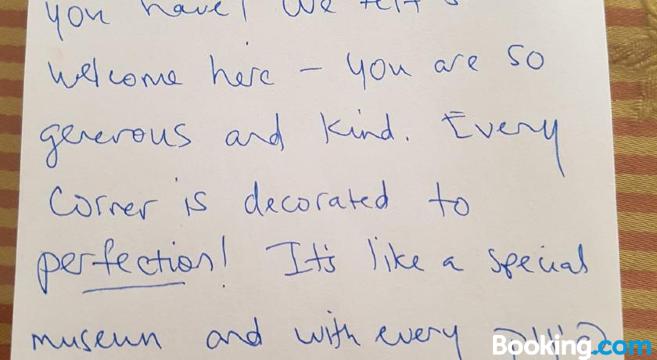 you have! We felt
welcome here – you are so
generous and kind. Every
corner is decorated to
perfection! It's like a special
museum and with every
Booking.com